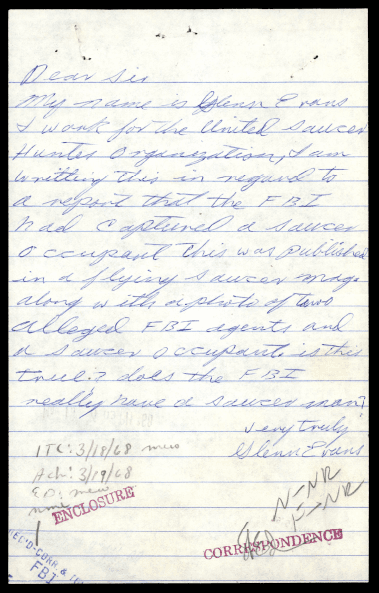 Dear Sir
My name is Glenn Evans
I work for the United Saucer
Hunter Organization, I am
writting this in regard to
a report that the FBI
had captured a saucer
occupant this was published
in a flying saucer mag.
along with a photo of two
alleged FBI agents and
a saucer occupant. is this
true? does the FBI
really have a saucer man?
very truly
Glenn Evans
ITC: 3/18/68 mew
Ack: 3/19/68
ED: mew
nmi
ENCLOSURE
N-NR
F-NR
CORRESPONDENCE
REC'D-CORR &
FBI